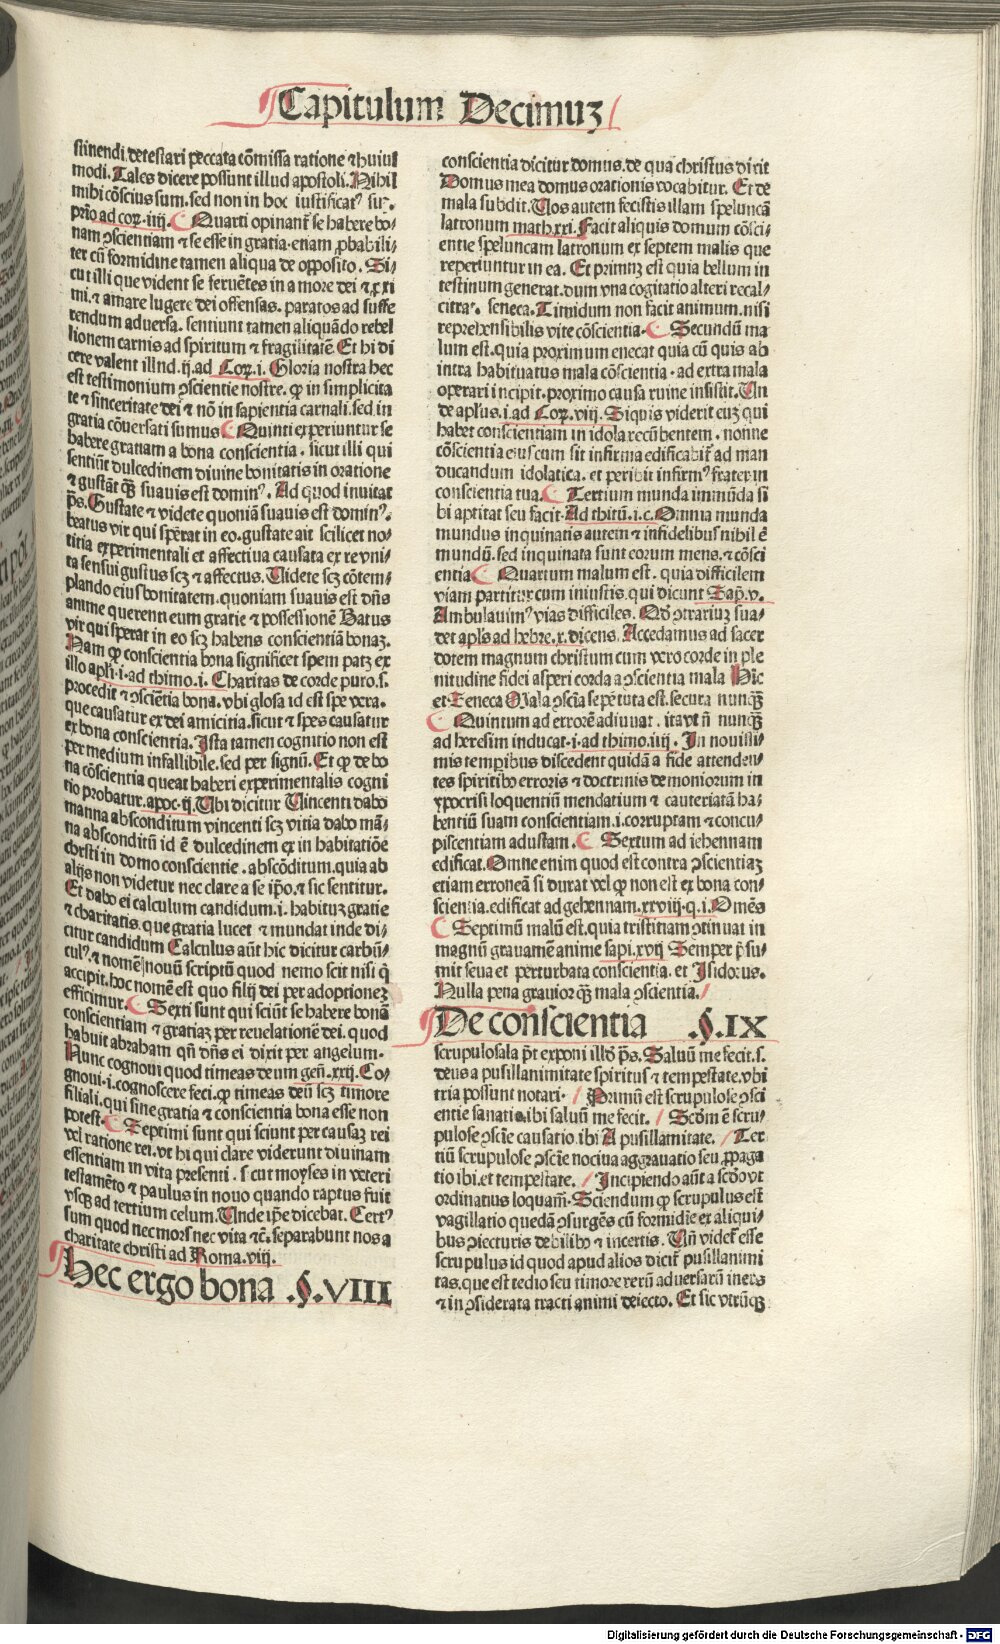 Capitulum Decimuz
stinendi.detestari peccata cōmissa ratione ⁊ huius
modi. Tales dicere possunt illud apostoli. Nihil
mihi cōscius sum. sed non in hoc iustificat᷑ suꝫ.
pṙio ad coꝝ. iiij. Quarti opinant᷑ se habere bo⸗
nam ↄscientiam ⁊ se esse in gratia. enam ꝓbabili⸗
ter cū formidine tamen aliqua de opposito. Si⸗
cut illi que vident se feruētes in amore dei ⁊ ꝓxi
mi. ⁊ amare lugere dei offensas. paratos ad suffe
rendum aduersa. sentiunt tamen aliquādo rebel
lionem carnis ad spiritum ⁊ fragilitatē Et hi di
cere valent illnd. ij. ad Coꝝ. i. Gloria nostra hec
est testimonium ↄscientie nostre. ꝙ in simplicita
te ⁊ sinceritate dei ⁊ nō in sapientia carnali. sed in
gratia cōuersati sumus Quinti experiuntur se
habere gratiam a bona conscientia. sicut illi qui
sentiūt dulcedinem diuine bonitatis in oratione
⁊ gustāt qꝫ̄ suauis est dominꝰ. Ad quod inuitat
p̄s. Gustate ⁊ videte quoniā suauis est dominꝰ.
beatus vir qui sꝑerat in eo. gustate ait scilicet no⸗
titia experimentali et affectiua causata ex re vni⸗
ta sensui gustus scꝫ ⁊ affectus. Videte scꝫ cōtem⸗
plando eius bonitatem. quoniam suauis est dn̄s
anime querenti eum gratie ⁊ possessionē Batus
vir qui sperat in eo scꝫ habens conscientiā bonaꝫ.
Nam ꝙ conscientia bona significet spem patꝫ ex
illo apl̄i. i. ad thimo. i. Charitas de corde puro. s.
procedit ⁊ ↄsciētia bona. vbi glosa id est spe vera.
que causatur ex dei amicitia. sicut ⁊ spes causatur
ex bona conscientia. Ista tamen cognitio non est
per medium infallibile. sed per signū. Et ꝙ de bo
na cōscientia queat haberi experimentalis cogni
tio probatur. apoc. ij. Vbi dicitur Vincenti dabo
manna absconditum vincenti scꝫ vitia dabo mā⸗
na absconditū id ē dulcedinem ex in habitatiōe
chr̄sti in domo conscientie. abscōditum. quia ab
alijs non videtur nec clare a se ip̄o. ⁊ sic sentitur.
Et dabo ei calculum candidum. i. habituꝫ gratie
⁊ charitatis. que gratia lucet ⁊ mundat inde di⸗
citur candidum Calculus aūt hic dicitur carbū⸗
culꝰ. ⁊ nomē nouū scriptū quod nemo scit nisi q̇
accipit. hoc nomē est quo filij dei per adoptioneꝫ
efficimur. Sexti sunt qui sciūt se habere bonā
conscientiam ⁊ gratiaꝫ per reuelationē dei. quod
habuit abrabam qn̄ dn̄s ei dixit per angelum.
Nunc cognoui quod timeas deum gen̄. xxij. Co⸗
gnoui. i. cognoscere feci. ꝙ timeas deū scꝫ timore
filiali. qui sine gratia ⁊ conscientia bona esse non
potest. Septimi sunt qui sciunt per causaꝫ rei
vel ratione rei. vt hi qui clare viderunt diuinam
essentiam in vita presenti. s cut moyses in veteri
testamēto ⁊ paulus in nouo quando raptus fuit
vsqꝫ ad tertium celum. Vnde ip̄e dicebat. Certꝰ
sum quod nec mors nec vita ⁊c̄. separabunt nos a
charitate christi ad Roma. viij.
Hec ergo bona .§. VIII
conscientia dicitur domus. de qua christus dixit
Domus mea domus orationis vocabitur. Et de
mala subdit. Vos autem fecistis illam speluncā
latronum math. xxi. Facit aliquis domum cōsci⸗
entie speluncam latronum ex septem malis que
reperiuntur in ea. Et primꝫ est quia bellum in
testinum generat. dum vna cogitatio alteri recal⸗
citrat᷑. seneca. Timidum non facit animum. nisi
reprehensibilis vite cōscientia. Secundū ma
lum est. quia proximum enecat quia cū quis ab
intra habituatus mala cōscientia. ad extra mala
operari incipit. proximo causa ruine insistit. Vn
de apl̄us. i. ad Coꝝ. viij. Siquis viderit euꝫ qui
habet conscientiam in idola recūbentem. nonne
cōscientia eius cum sit infirma edificabit᷑ ad man
ducandum idolatica. et peribit infirmꝰ frater in
conscientia tua. Tertium munda immūda si
bi aptitat seu facit. Ad thitū. i. c. Omnia munda
mundus inquinatis autem ⁊ infidelibus nibil ē
mundū. sed inquinata sunt eorum mens. ⁊ cōsci
entia Quartum malum est. quia difficilem
viam partitur cum iniustis. qui dicunt Sap̄. v.
Ambulauimꝰ vias difficiles. Qd̄ ↄtrariuꝫ sua⸗
det apl̄s ad hebre. x. dicens. Accedamus ad sacer
dotem magnum christum cum vero corde in ple
nitudine fidei asperi corda a ↄscientia mala Hic
et Seneca Mala ↄsciā sepe tuta est. secura nunqꝫ̄
Quintum ad errorē adiuuat. ita vt n̄ nunqꝫ̄
ad heresim inducat. i. ad thimo. iiij. In nouissi⸗
mis tempꝛibus discedent quidā a fide attenden⸗
tes spiritibꝰ erroris ⁊ doctrinis demoniorum in
ypocrisi loquentiū mendatium ⁊ cauteriatā ha⸗
bentiū suam conscientiam. i. corruptam ⁊ concu⸗
piscentiam adustam. Sextum ad iehennam
edificat. Omne enim quod est contra ↄscientiaꝫ
etiam erroneā si durat vel ꝙ non est ex bona con⸗
scientia. edificat ad gehennam. xxviij. q. i. Omēs
Septimū malū est. quia tristitiam ↄtinuat in
magnū grauamē anime sapi. xvij Semper p̄su⸗
mit seua et perturbata conscientia. et Isidorus.
Nulla pena grauior qꝫ̄ mala ↄscientia.
De conscientia .§. IX
scrupulosa la p̄t exponi illd̄ p̄s. Saluū me fecit. s.
deus a pusillanimitate spiritus ⁊ tempestate. vbi
tria possunt notari. Primū est scrupulose ↄsci
entie sanatio. ibi saluū me fecit. Scd̄m ē scru⸗
pulose ↄscīe causatio. ibi A pusillamitate. Ter
tiū scrupulose ↄscīe nociua aggrauatio seu ꝓpaga
tio ibi. et tempestate. Incipiendo aūt a scd̄o vt
ordinatus loquam᷑. Sciendum ꝙ scrupulus est
vagillatio quedā ↄsurgēs cū formidīe ex aliqui⸗
bus ↄiecturis debilibꝰ ⁊ incertis. Vn̄ videt᷑ esse
scrupulus id quod apud alios dicit᷑ pusillanimi
tas. que est tedio seu timore rerū aduersarū iners
⁊ in ↄsiderata tracti animi deiecto. Et sic vtrūqꝫ
Digitalisierung gefördert durch die Deutsche Forschungsgemeinschaft - DFG